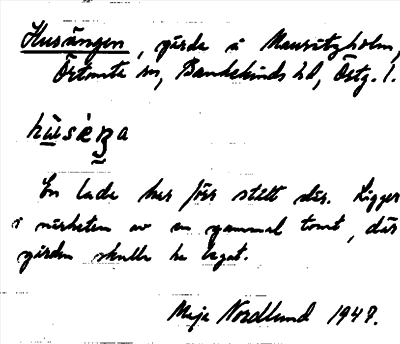 Husängen, gärde i Mauritzholm,
Örtomta sn, Bankekinds hd, Östg. l.
hùsæŋa
En lada har förr stått där. Ligger
i närheten av en gammal tomt, där
gården skulle ha legat.
Maja Nordlund 1947.